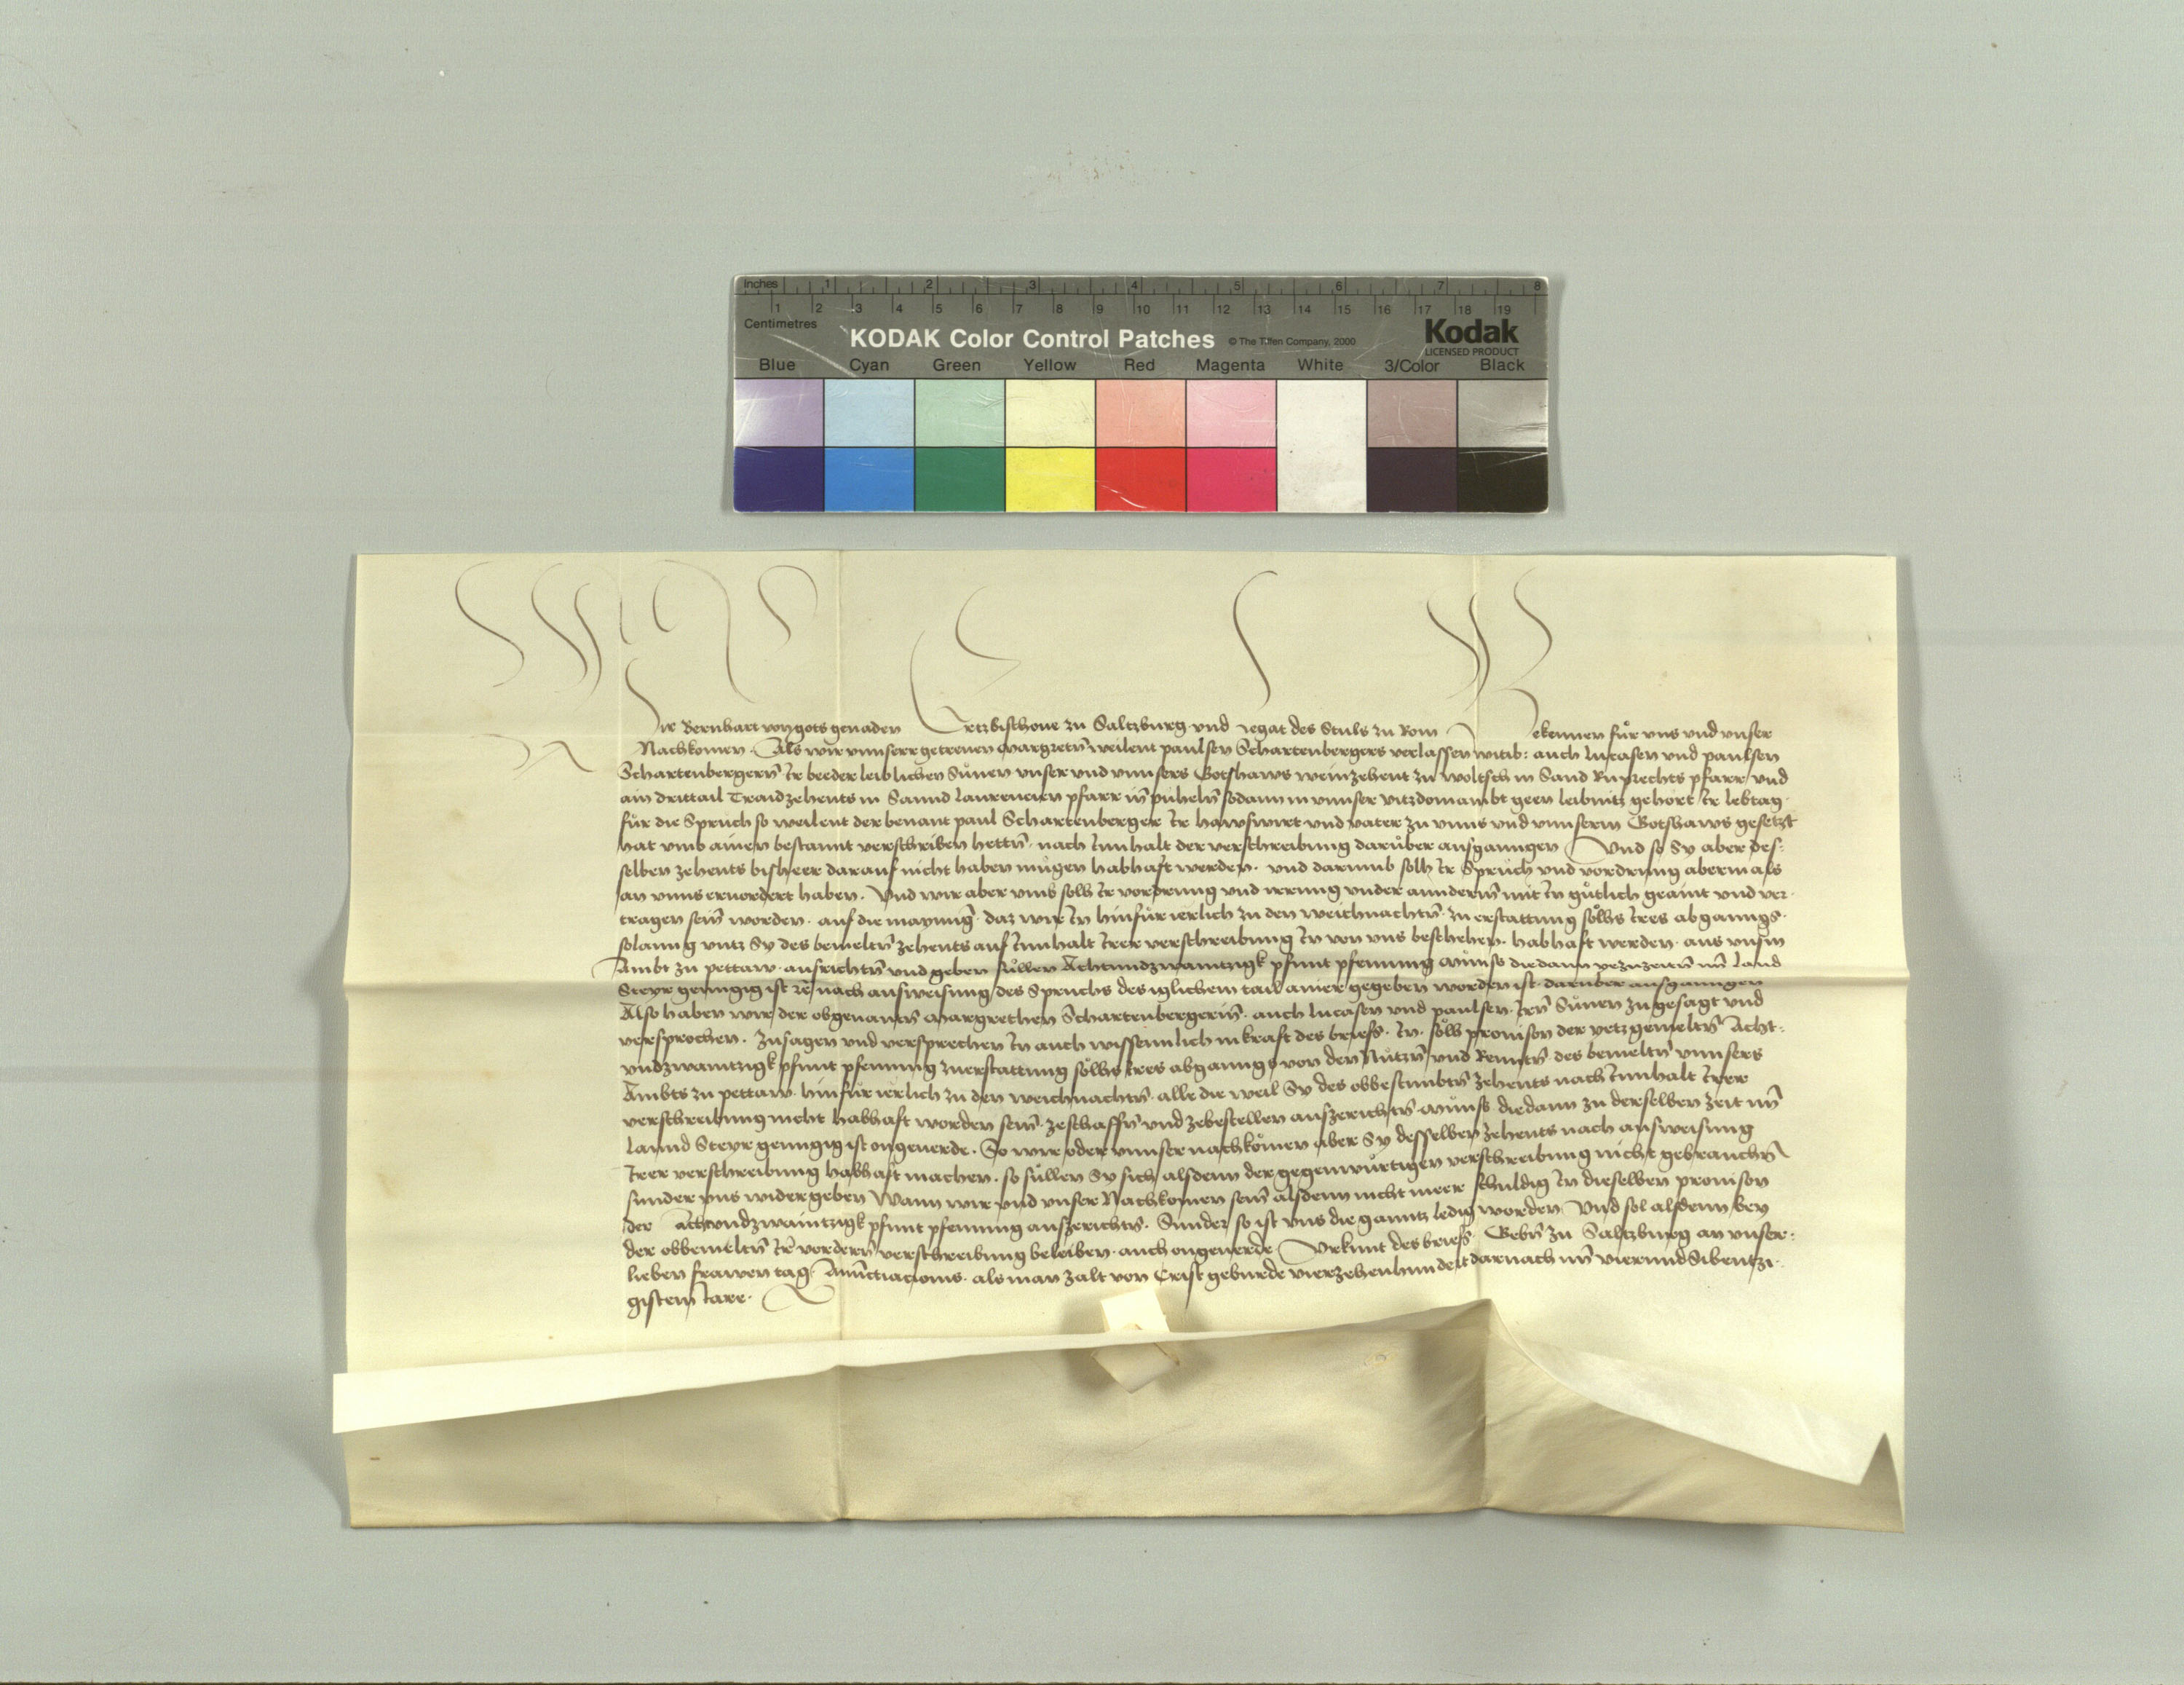 Inches 1 2 3 4 5 6 7 8
1 2 3 4 5 6 7 8 9 10 11 12 13 14 15 16 17 18 19
Centimetres
KODAK Color Control Patches © The Tiffen Company, 2000 Kodak
LICENSED PRODUCT
Blue Cyan Green Yellow Red Magenta White 3/Color Black
Wir Bernhart von gots genaden Ertzbischoue zu Saltzburg und Legat des Stuls zu Rom Bekennen für uns und unser
Nachkomen. Als wir unnserr getreuen Margretn̄ weilent paulsen Schartenbergers verlassen witib: auch lucasen und paulsen
Schartenbergern̄ Ir beeder leiblichen Sůnen unser und unnsers Gotshaws weinzehent zu woltsch in Sand Ruprechts pfarr und
ain drittail Traidzehents in Sannd laurencien pfarr in̄ půheln̄ sodann in unnser vitzdomambt geen leibnitz gehört Ir lebtag
für die Sprüch so weilent der benant paul Schartenberger Ir hawswirt und vater zu unns und unnserm Gotshaws gesetzt
hat umb ainen bestannt verschriben hettn̄. nach Innhalt der verschreibung darůber ausganngen Und so Sy aber des:
selben zehents bisheer darauf nicht haben mügen habhaft werden. und darumb solh Ir Sprüch und vordrung abermals
an unns eruordert haben. Und wir aber umb solh Ir vordrung und irrung under anndern̄ mit In gůtlich geaint und ver-
tragen sein̄ worden. auf die maynung. daz wir In hinfür ierlich zu den weichnachtn̄. zu erstattung sölhs Ires abganngs.
solanng untz Sy des bemeltn̄ zehents auf Innhalt Irer verschreibung In von uns beschehen. habhaft werden. aus unsm̄
Ambt zu pettaw. ausrichtn̄ und geben sůllen Achtundzwaintzigk phunt phenning můnss die dann yezuzeitn̄ im̄ land
Steyr genngig ist nach ausweisung des Spruchs des yglichem tail ainer gegeben worden ist. darüber ausganngen
Also haben wir der obgenantn̄ Margrethen Schartenbergerin̄. auch lucasen und paulsen. Irn̄ Sůnen zugesagt und
versprochen. Zusagen und versprechen In auch wissennlich in kraft des briefs. In. solh prouison der yetzgemeltn̄ Acht-
undzwaintzigk phunt phenning zuerstattung sölhs Ires abganngs von den Nützn̄ und Renntn̄ des bemeltn̄ unnsers
Ambts zu pettaw. hinfür ierlich zu den weichnachtn̄. alle die weil Sy des obbestimbtn̄ zehents nach Innhalt Irer
verschreibung nicht habhaft worden sein̄. zeschaffn̄ und zebestellen auszerichtn̄. můnss die dann zu derselben zeit im̄
lannd Steyr genngig ist ongeuerde. So wir oder unnser nachkomen aber Sy desselben zehents nach ausweisung
Irer verschreibung habhaft machen. so sůllen Sy sich alsdenn der gegenwürtigen verschreibung nicht gebrauchn̄
sunder uns widergeben Wann wir und unser Nachkomen sein̄ alsdenn nicht meer schuldig In dieselben prouison
der Achtundzwaintzigk phunt phenning auszerichtn̄. Sunder so ist uns die ganntz ledig worden Und sol alsdenn bey
der obbemeltn̄ Ir vordern̄ verschreibung beleiben. auch ongeuerde Urkunt des briefs Gebn̄ zu Saltzburg an unser:
lieben frawen tag. Annūctiacionis. als man zalt von Crist geburde vierzehenhundert darnach im̄ vierundSibentzi-
gistem Jare.